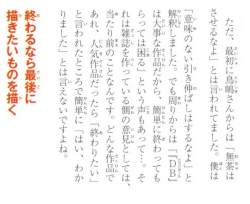 ただ、最初に鳥嶋さんからは「無茶は
させるなよ」とは言われてました。僕は
「意味のない引き伸ばしはするなよ」と
解釈しました。でも周りからは「『DB』
は大事な作品だから、簡単に終わっても
らっては困る」という声もあって…。そ
れは雑誌を作っている側の意見としては、
当たり前のことなんです。どんな作品で
あれ、人気作品だったら「終わりたい」
と言われたところで簡単に「はい、わか
りました」とは言えないですよね。
終わるなら最後に
描きたいものを描く